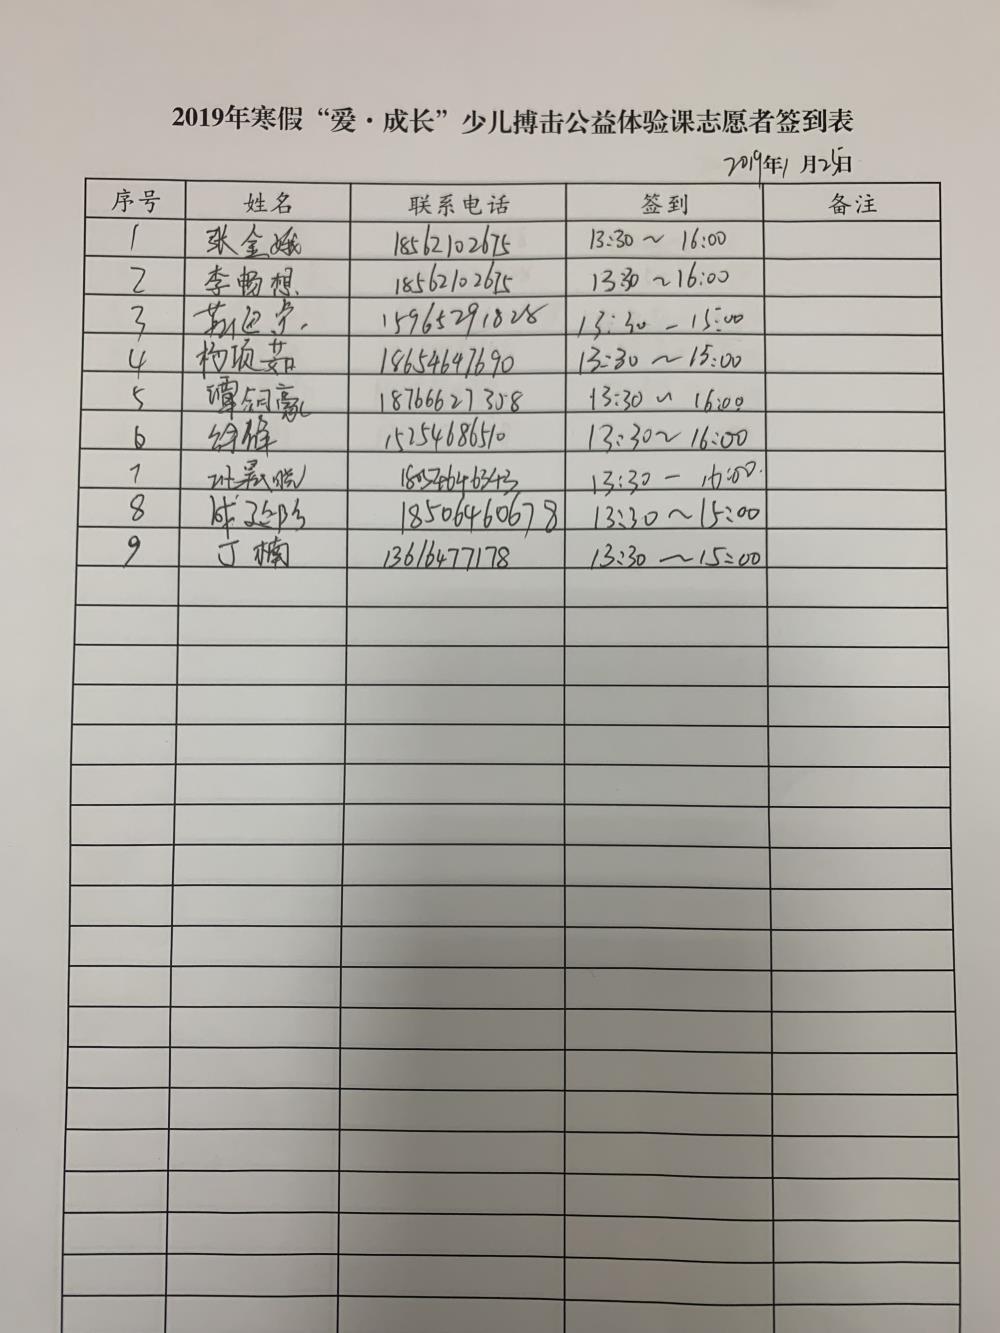 2019年寒假“爱·成长”少儿搏击公益体验课志愿者签到表
2019年1月25日
序号 姓名 联系电话 签到 备注
1 张金娥 18562102675 13:30～16:00
2 李畅想 18562102675 13:30～16:00
3 15965291828 13:30-15:00
4 杨项茹 18654647690 13:30～15:00
5 谭 18766627308 13:30～16:00
6 徐 15254686510 13:30～16:00
7 18054646343 13:30-16:00
8 成 18506460678 13:30～15:00
9 丁楠 13616477178 13:30～15:00